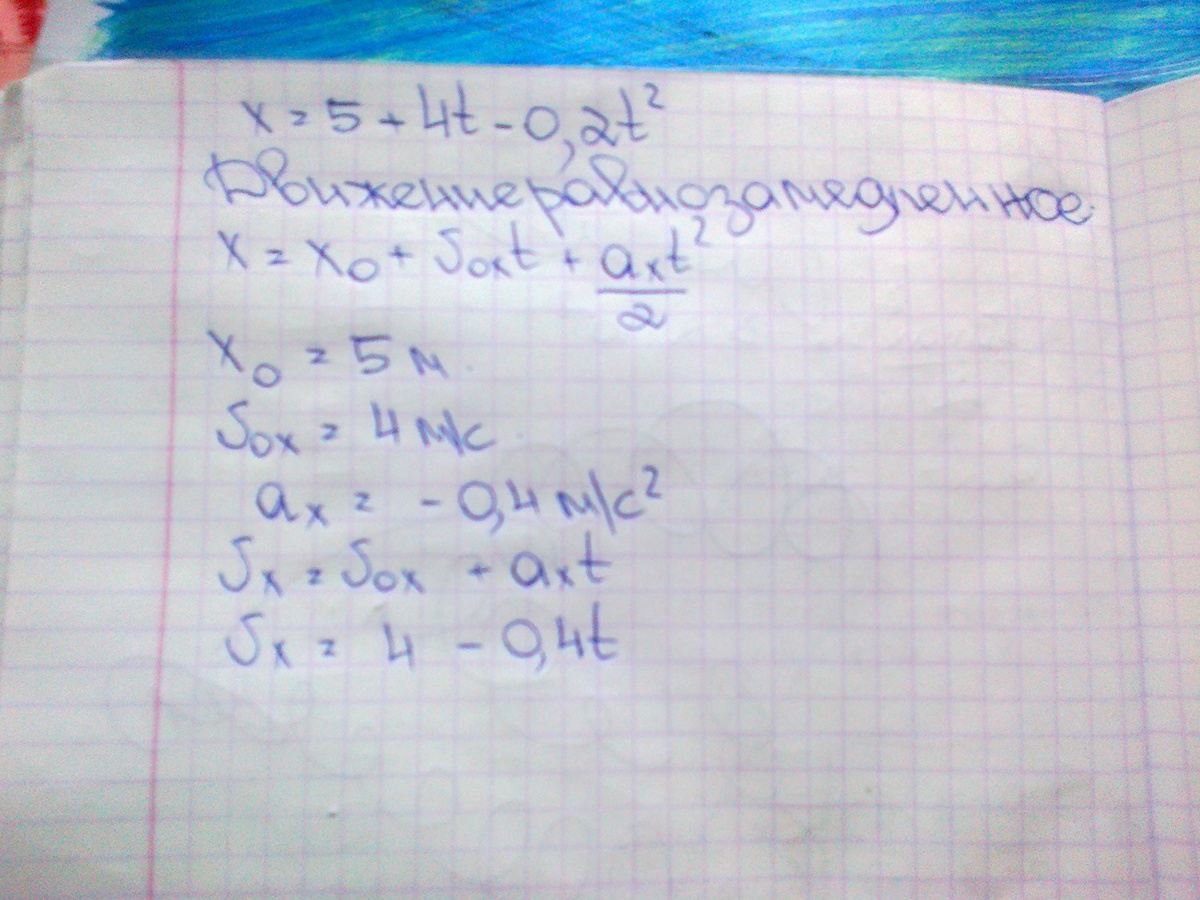 x = 5 + 4t - 0,2t²
Движение равнозамедленное.
x = x₀ + υ₀ₓt + aₓt²/2
x₀ = 5 м
υ₀ₓ = 4 м/с
aₓ = - 0,4 м/с²
υₓ = υ₀ₓ + aₓt
υₓ = 4 - 0,4t